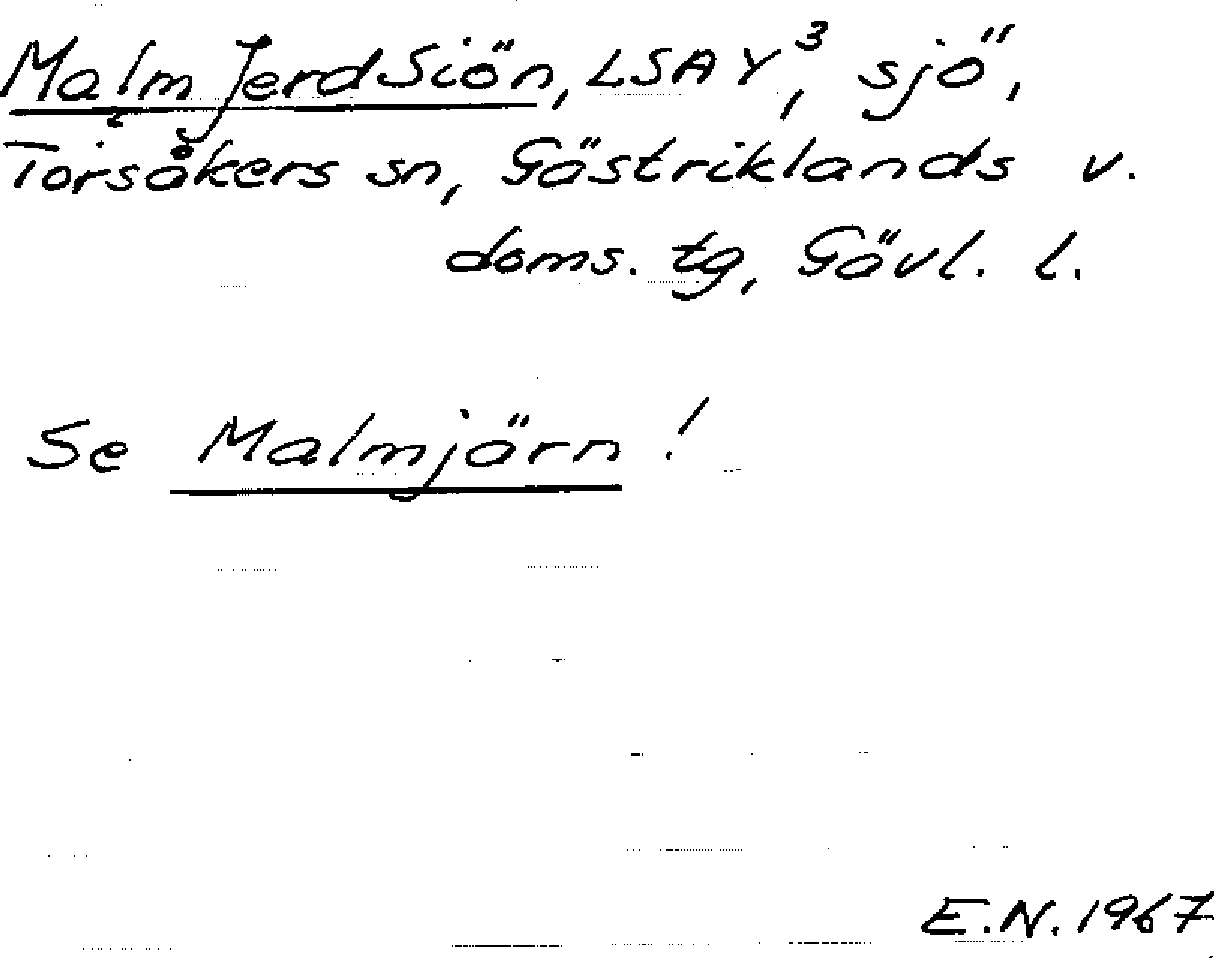 Malm JerdSiön, LSA Y³, sjö,
Torsåkers sn, Gästriklands v.
doms. tg, Gävl. l.
Se Malmjärn!
E.N. 1967